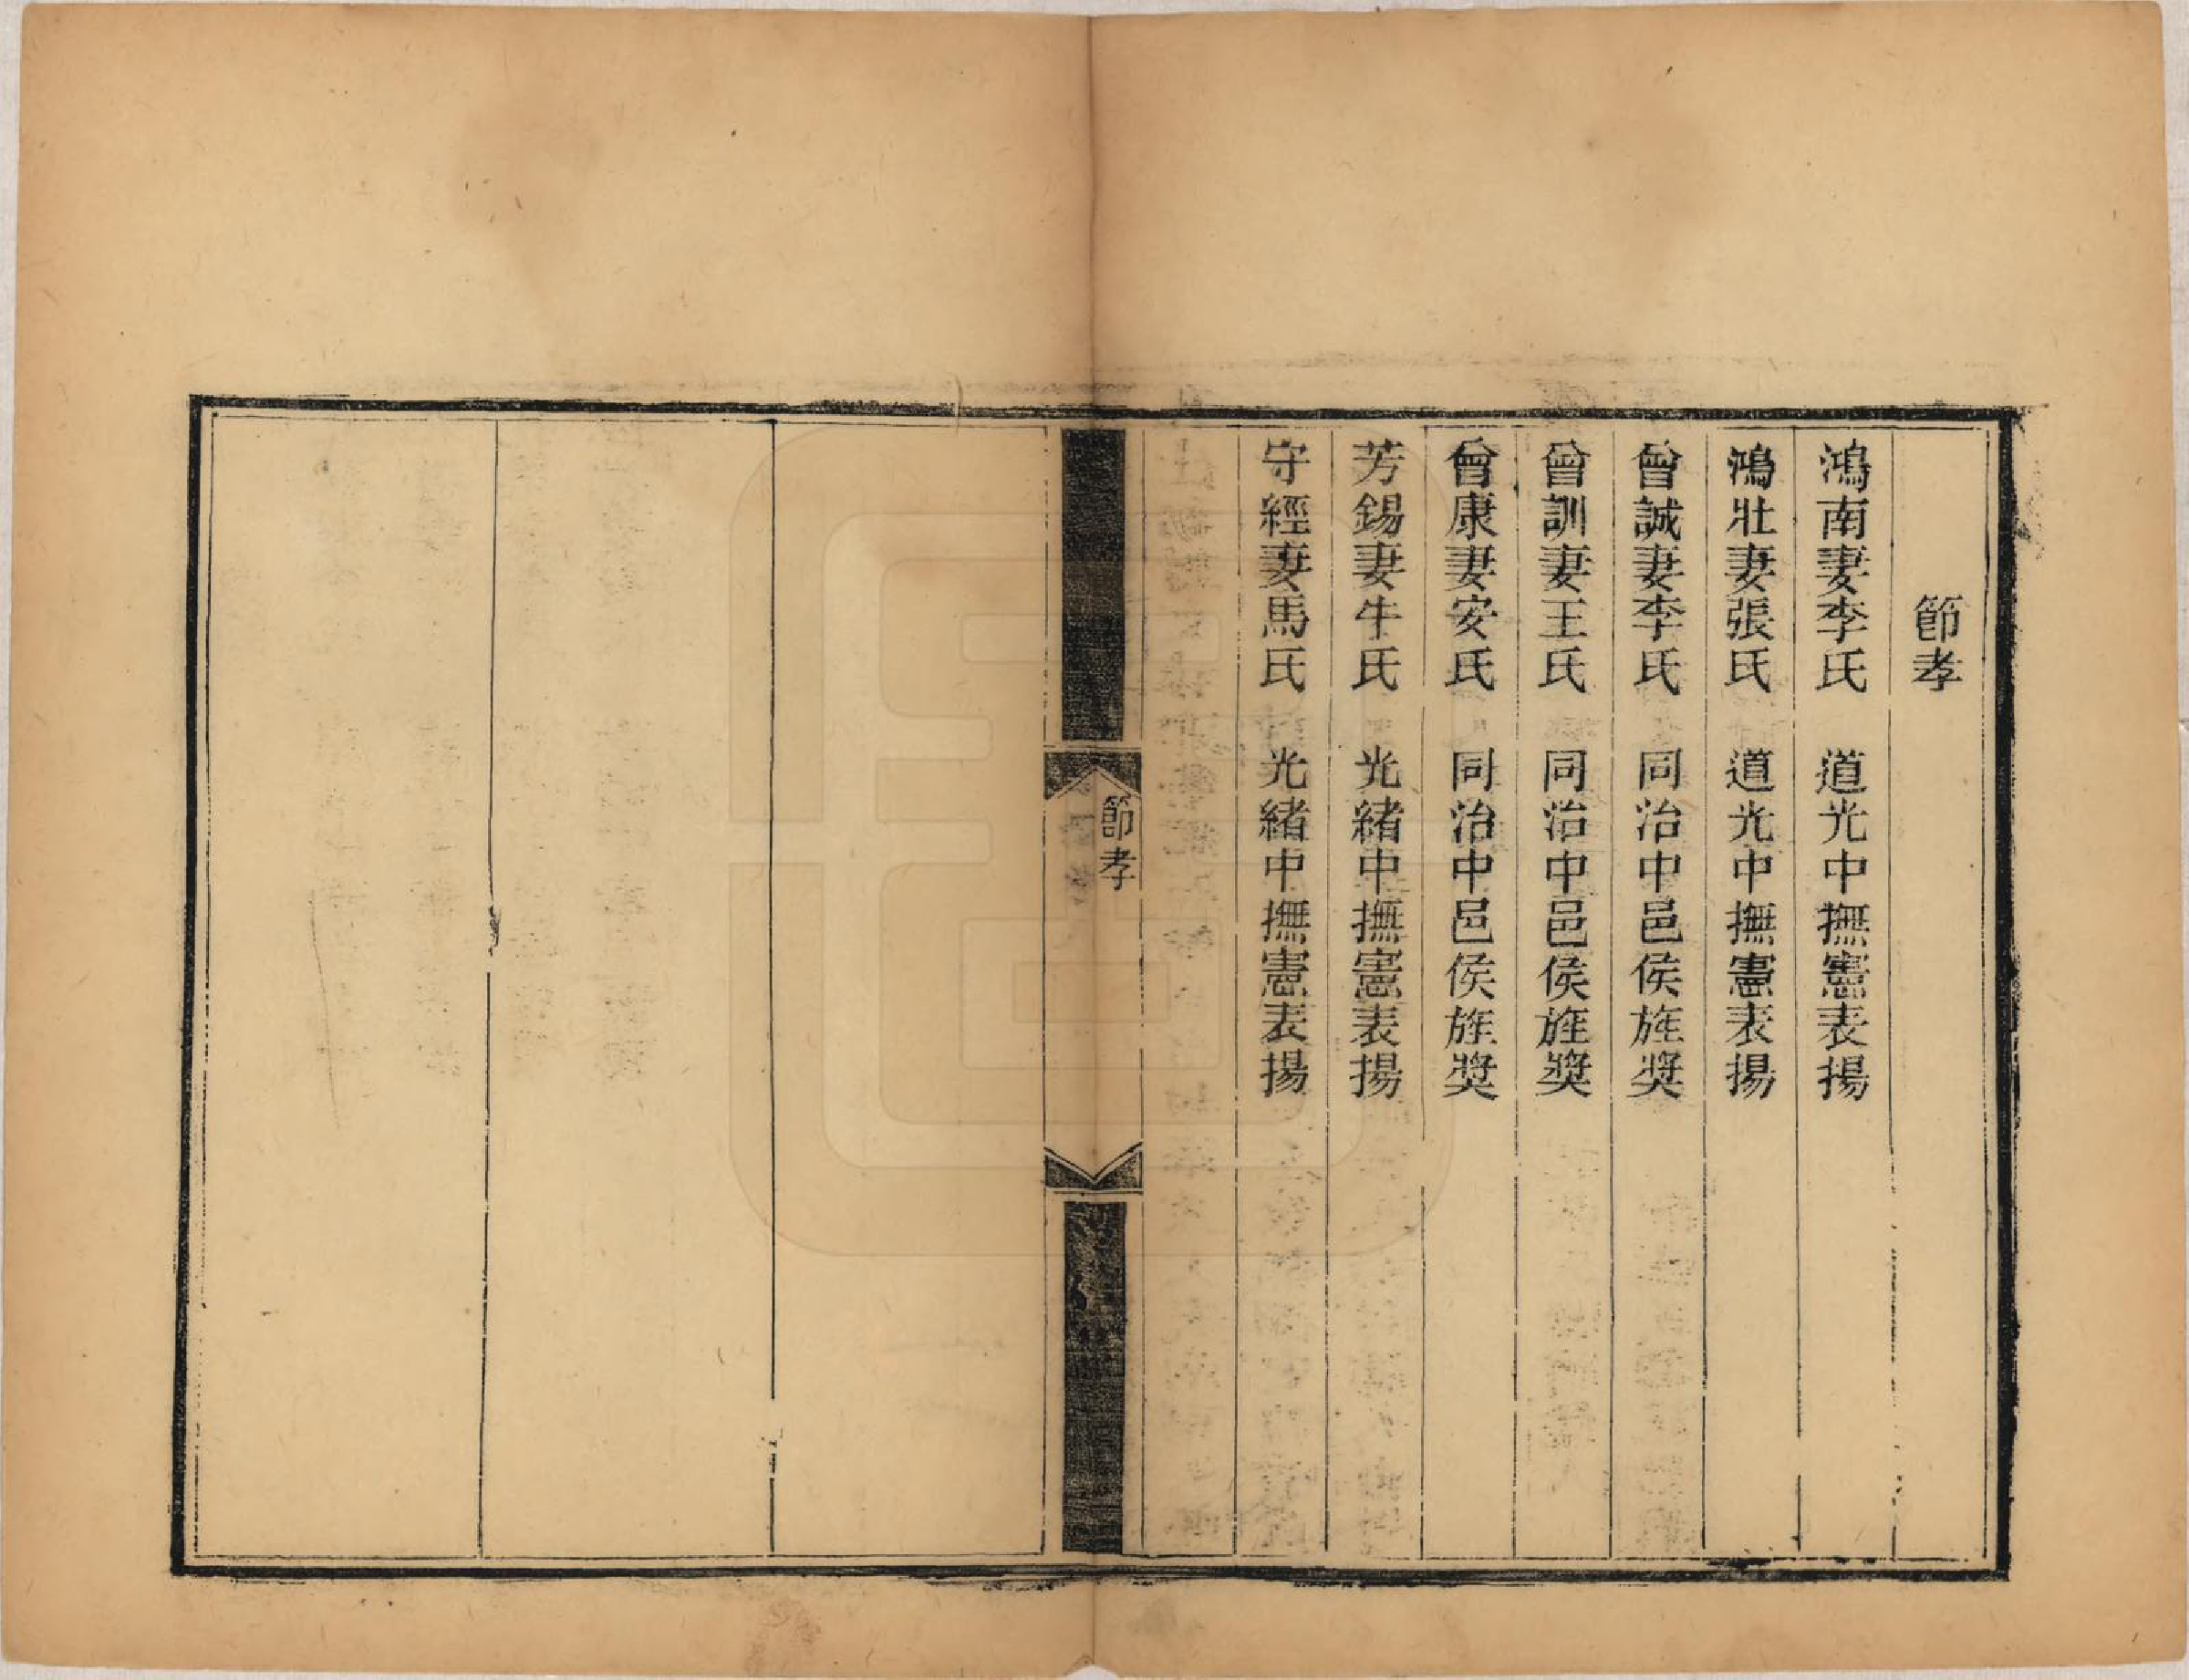 節孝
鴻南妻李氏　道光中撫憲表揚
鴻壯妻張氏　道光中撫憲表揚
曾誠妻李氏　同治中邑侯旌獎
曾訓妻王氏　同治中邑侯旌獎
曾康妻安氏　同治中邑侯旌獎
芳錫妻牛氏　光緒中撫憲表揚
守經妻馬氏　光緒中撫憲表揚
節孝